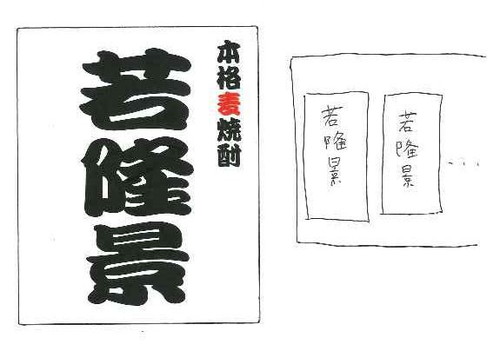 本格麦焼酎
若隆景
若隆景
若隆景
...